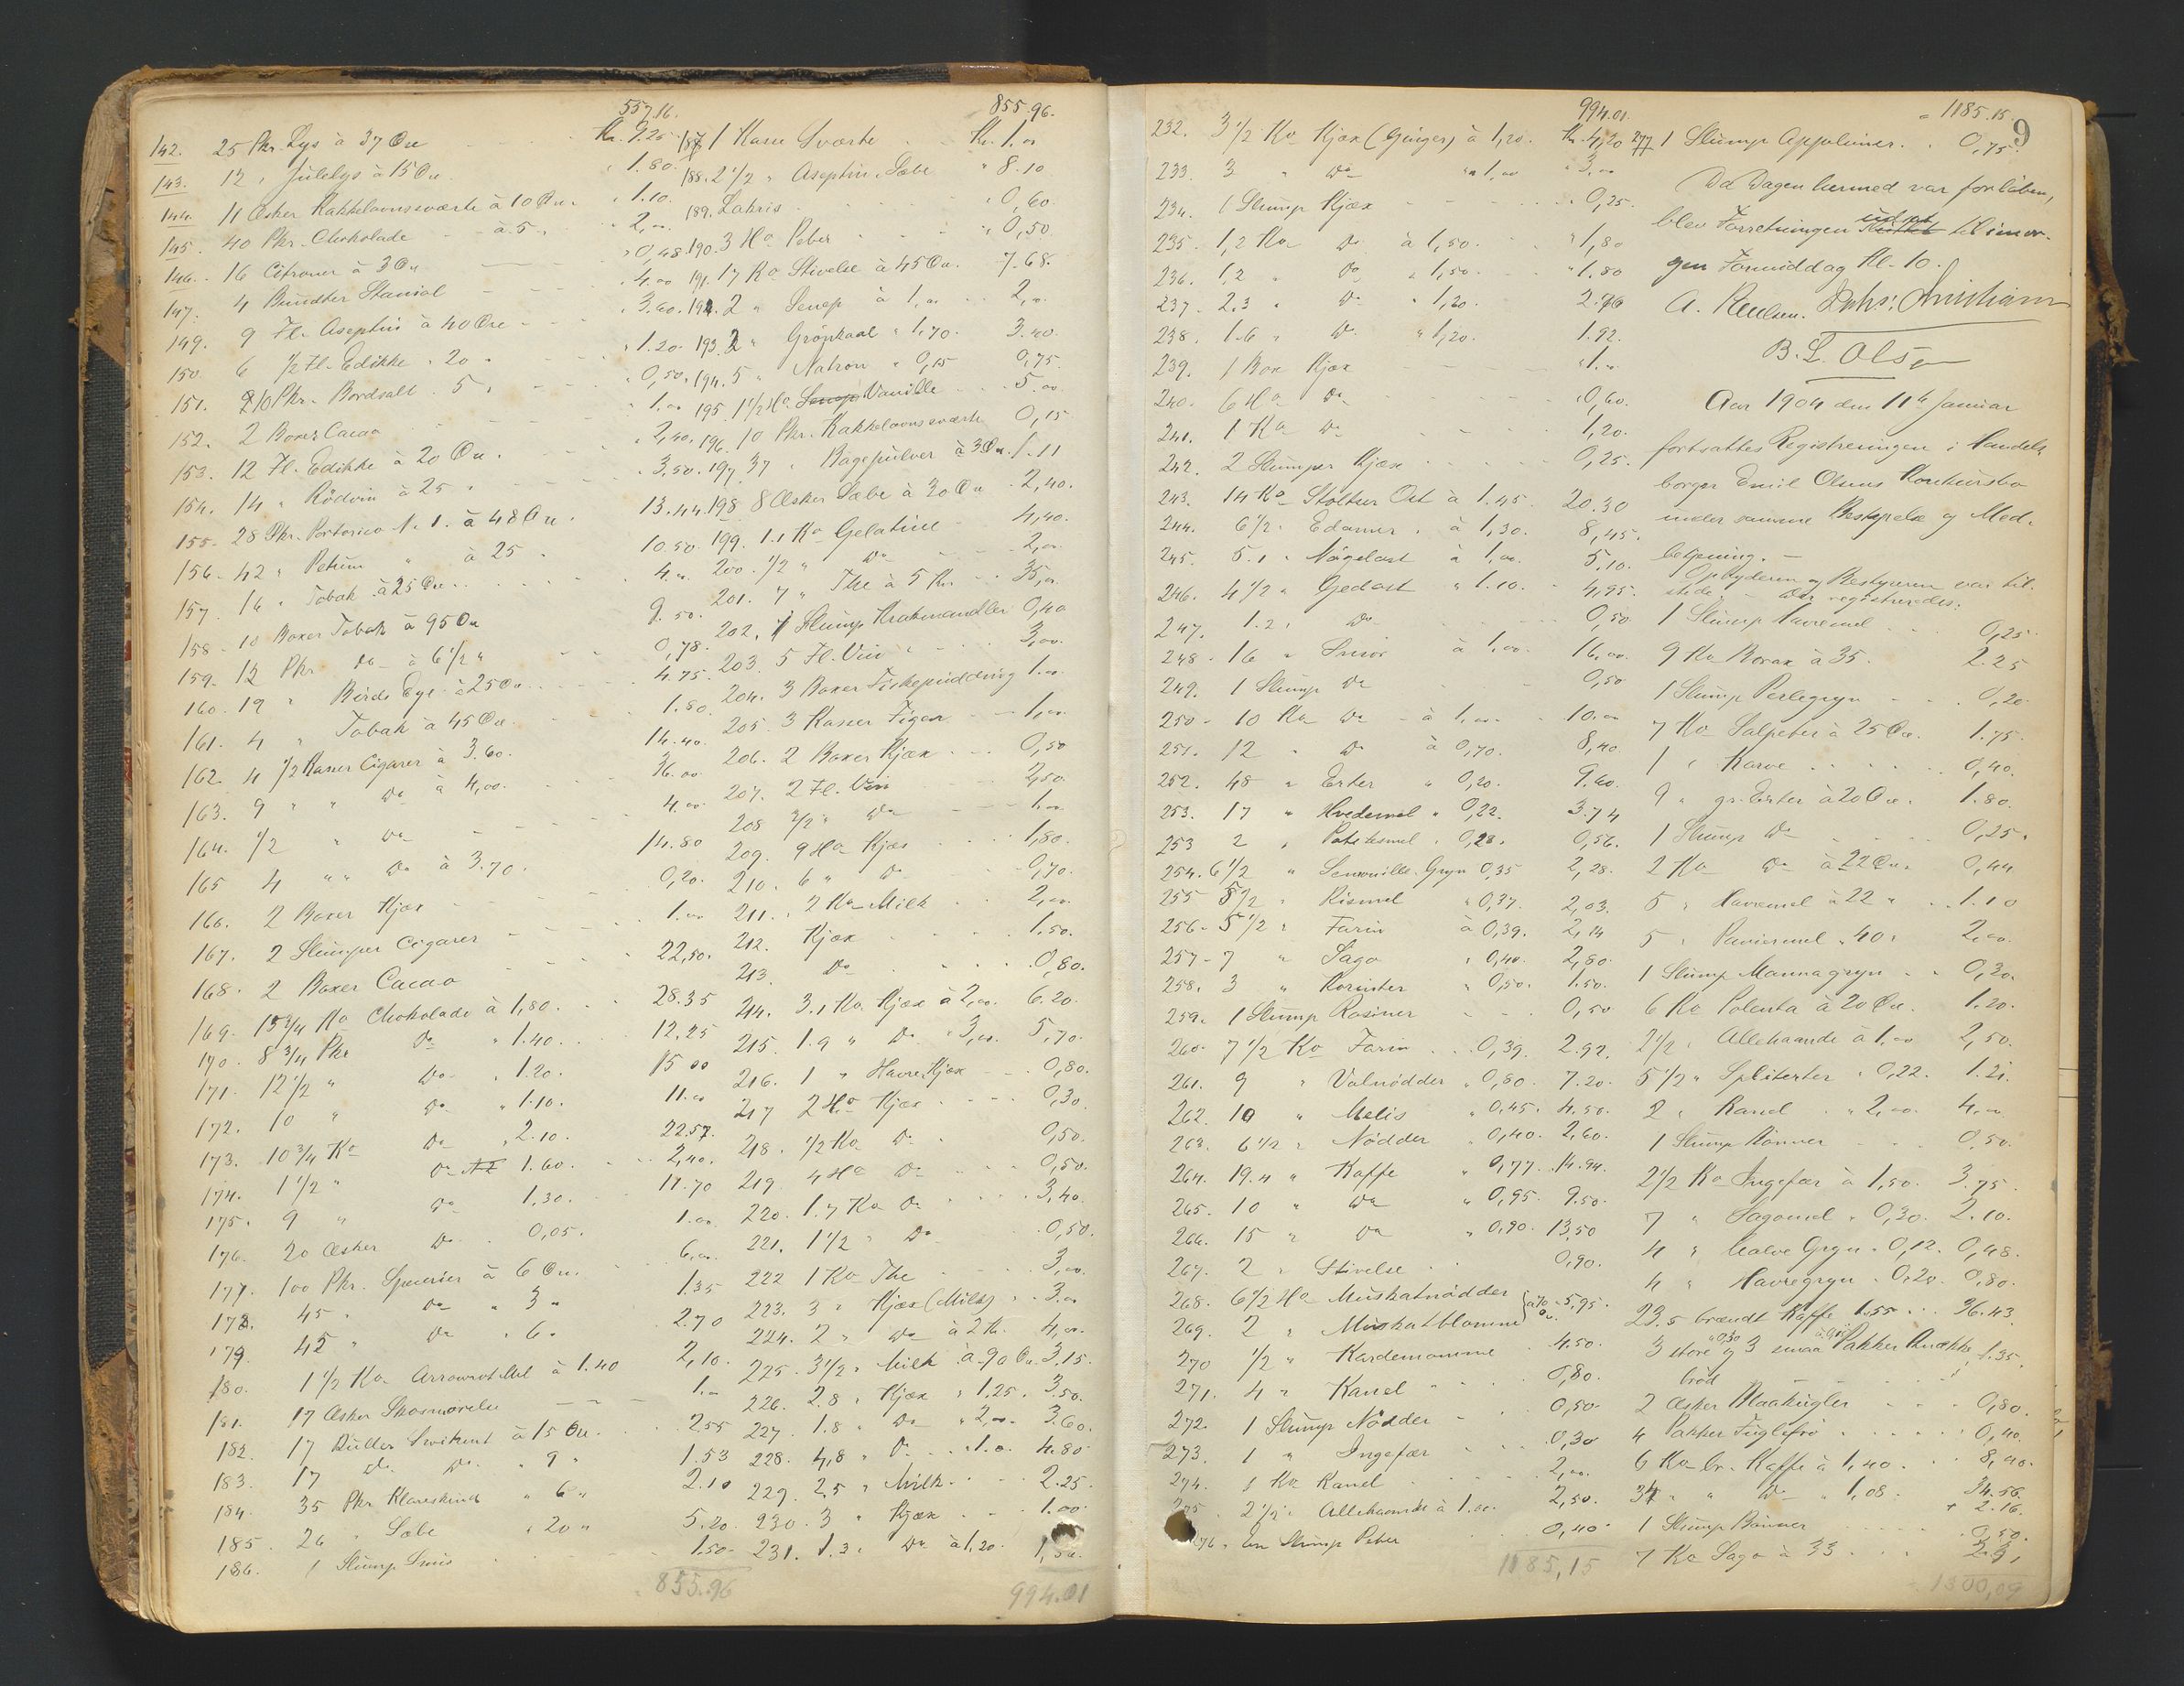 557.16.
142. 25 Pkr. Lys à 37 Øre Kr. 9.25
143. 12 " Julelys à 15 Øre " 1.80.
144. 11 Æsker Kakkelovnsværte à 10 Øre " 1.10.
145. 40 Pkr. Chokolade à 5 " " 2,00
146. 16 Citroner à 3 Øre " 0,48
147. 4 Bundter Staniol " 4.00
149. 9 Fl. Aseptin à 40 Øre " 3.60.
150. 6 1/2 Fl. Edikke " 20 " " 1.20.
151. 10 Pkr. Bordsalt " 5 " " 0,50.
152. 2 Boxer Cacao " 1.00
153. 12 Fl. Edikke à 20 Øre " 2,40.
154. 14 " Rödvin à 25 " " 3.50.
155. 28 Pkr. Portorico No 1. à 48 Øre. 13.44.
156. 42 " Petum " à 25 " 10.50.
157. 16 " Tobak à 25 Øre 4.00
158. 10 Boxer Tobak à 95 Øre 9.50.
159. 12 Pkr. Do à 6 1/2 " 0,78.
160. 19 " Birds Eye à 25 Øre 4.75.
161. 4 " Tobak à 45 Øre 1.80.
162. 4 1/2 Kasser Cigarer à 3.60. 14.40.
163. 9 " " Do à 4,00. 36.00
164. 1/2 " Do 4.00
165. 4 " " Do à 3.70. 14.80
166. 2 Boxer Kjæx 0,20.
167. 2 Slumper Cigarer 1.00
168. 2 Boxer Cacao 22,50.
169. 15 3/4 Ko Chokolade à 1,80. 28.35
170. 8 3/4 Pkr Do " 1.40. 12.25
171. 12 1/2 " Do " 1.20. 15 00
172. 10 " Do " 1.10. 11.00
173. 10 3/4 Ko Do " 2.10. 22.57.
174. 1 1/2 " Do 1.60. 2,40.
175. 9 " Do 1,30. 11.70
176. 20 Æsker Do 0,05. 1.00
177. 100 Pkr. Specerier à 6 Øre. 6.00
178. 45 " Do " 3 " 1.35
179. 45 " Do " 6 " 2.70
180. 1 1/2 Ko. ArrowrotMel à 1.40 2,10.
181. 17 Æsker Skosmørelse 1.00
182. 17 Ruller Switzent à 15 Øre. 2.55
183. 17 do. Do. " 9 " 1.53
184. 35 Pkr. Klareskind " 6 " 2.10
185. 26 " Sæbe " 20 " 5.20.
186. 1 Slump Snus 1.50.
855.96
855.96.
187. 1 Kasse Sværte Kr. 1.00
188. 2 1/2 " Aseptin. Sæbe " 8.10
189. Lakris " 0,60.
190. 3 Ho Peber " 0,50.
191. 17 Ko Stivelse à 45 Øre. 7.68.
192. 2 " Senep à 1,00 2,00.
193. 2 " Grönkaal " 1,70. 3.40.
194. 5 " Natron " 0,15 0,75.
195. 1 1/2 Ho Vanille 5.00
196. 10 Pkr. Kakkelovnsværte 0,15
197. 37 " Bagepulver à 3 Øre. 1.11
198. 8 Æsker Sæbe à 30 Øre 2,40.
199. 1.1 Ko Gelatine 4,40.
200. 1/2 " Do 2,00.
201. 7 " The à 5 Kr. 35,00.
202. 1 Slump Krakmandler 0,40
203. 5 Fl. Vin 3,00.
204. 3 Boxer Fiskepudding 1.00
205. 3 Kasser Figen 1,00.
206. 2 Boxer Kjæx 0,50
207. 2 Fl. Vin 2,50.
208. 2/2 " Do 1.00
209. 9 Ho Kjæx 1,80.
210. 6 " Do 0,70.
211. 2 Ko Milk 2,00.
212. Kjæx 1.50.
213. Do 0,80.
214. 3.1 Ko. Kjæx à 2,00. 6.20.
215. 1.9 " Do " 3,00 5,70.
216. 1 " HavreKjæx 0,80.
217 2 Ho Kjæx 0,30.
218. 1/2 Ko. Do 0,50.
219. 4 Ho Do 0,50.
220. 1.7 Ko Do 3,40.
221. 1 1/2 " Do 0,50.
222 1 Ko The 3,00.
223. 3 " Kjæx (Milk) 3.00
224. 2 " Do à 2 Kr. 4,00.
225. 3 1/2 " Milk à 90 Øre. 3.15.
226. 2.8 " Kjæx " 1.25. 3.50.
227. 1.8 " Do " 2,00. 3.60.
228. 4,8 " Do " 1.0. 4.80
229. 2,5 " Milk. 2.25.
230. 3 " Kjæx 1.00
231. 1.3 " Do à 1.20.
994.01
994.01.
232. 3 1/2 Ko Kjæx (Ginger) à 1,20. Kr. 4,20
233. 3 " Do " 1,00 " 3,00
234. 1 Slump Kjæx " 0,25.
235. 1,2 Ko Do à 1,50. " 1,80
236. 1,2 " Do " 1,50. " 1.80
237. 2.3 " Do " 1,20. 2.76
238. 1.6 " Do " 1,20. 1.92.
239. 1 Box Kjæx " 1.00
240. 6 Ho Do " 0,60.
241. 1 Ko Do 1,20.
242. 2 Slumper Kjæx 0,25.
243. 14 Ko Stoltser Ost à 1.45. 20.30
244. 6 1/2 " Edamer " à 1,30. 8,45.
245. 5.1 " Nögelost à 1,00. 5,10.
246. 4 1/2 " Gedost " 1.10. 4,95.
247. 1.2 " Do 0,50
248. 16 " Smör à 1,00. 16,00.
249. 1 Slump Do 0,50
250. 10 Ko Do à 1,00. 10.00
251. 12 " Do à 0,70. 8,40.
252. 48 " Erter " 0,20. 9.60.
253. 17 " Hvedemel " 0,22. 3.74
253 2 " Potetesmel " 0,28. 0,56.
254. 6 1/2 " Semouille-Gryn 0,35 2,28.
255 5 1/2 " Rismel " 0,37. 2,03.
256. 5 1/2 " Farin à 0,39. 2,14
257. 7 " Sago " 0,40. 2,80.
258. 3 " Korinter " 0,50. 1.50.
259. 1 Slump Rosiner 0,50
260. 7 1/2 Ko Farin 0,39. 2.92.
261. 9 " Valnödder " 0,80. 7.20.
262. 10 " Melis " 0,45. 4.50.
263. 6 1/2 " Nödder " 0,40. 2,60.
264. 19.4 " Kaffe " 0,77. 14.94.
265. 10 " Do " 0,95. 9.50.
266. 15 " Do " 0,90. 13,50
267. 2 " Stivelse 0,90.
268. 6 1/2 Ho Muskatnödder } à 70 Øre. 5,95.
269. 2 " Muskatblomme
270 1/2 " Kardemomme 4.50.
271. 4 " Kanel 0,80.
272. 1 Slump Nödder 0,50
273. 1 " Ingefær 0,30
274. 1 Ko Kanel 2,00.
2 1/2 " Allehaande à 1.00. 2,50.
En Slump Peber 0,40
1185,15
9
1185.15.
277 1 Slump Appelsiner. 0,75
Da Dagen hermed var forlöben,
blev Forretningen udsat til imor-
gen Formiddag Kl. 10.
B. L. Olsen
Aar 1904 den 11te Januar
fortsattes Registreringen i Handels
borger Emil Olsens Konkursbo
under samme Bestyrelse og Med-
betjening.
Opbyderen og Bestyreren var til-
stede. Der registreredes:
1 Slump Havremel 0,25.
9 Ko Borax à 35. 2.25
1 Slump Perlegryn 0,20.
7 Ko Salpeter à 25 Øre. 1.75.
1 " Karve 0,40.
9 " gr. Erter à 20 Øre. 1.80.
1 Slump Do 0,25.
2 Ko Do à 22 Øre. 0,44
5 " Havremel à 22 " 1.10
5 " Paniermel " 40 " 2,00.
1 Slump Mannagryn 0,30.
6 Ko Polenta à 20 Øre. 1.20.
2 1/2 " Allehaande à 1,00 2,50.
5 1/2 " Spliterter " 0,22. 1.21.
2 " Kanel " 2,00. 4,00
1 Slump Bönner 0,50.
2 1/2 Ko Ingefær à 1,50. 3.75.
7 " Sagomel " 0,30. 2.10.
4 " Halve Gryn " 0,12. 0,48.
4 " Havregryn " 0,20. 0,80.
23.5 brændt Kaffe 1.55 36.43
3 store og 3 smaa Pakker Knække 1.35.
bröd
2 Æsker Blaakugler 0,80.
4 Pakker Fuglefrö 0,40.
6 Ko br. Kaffe à 1,40. 8,40.
34 " " Do " 1,08. 34.56.
+ 2.16.
1 Slump Bönner 0,50.
7 Ko Sago à 33 2.31
1300,09